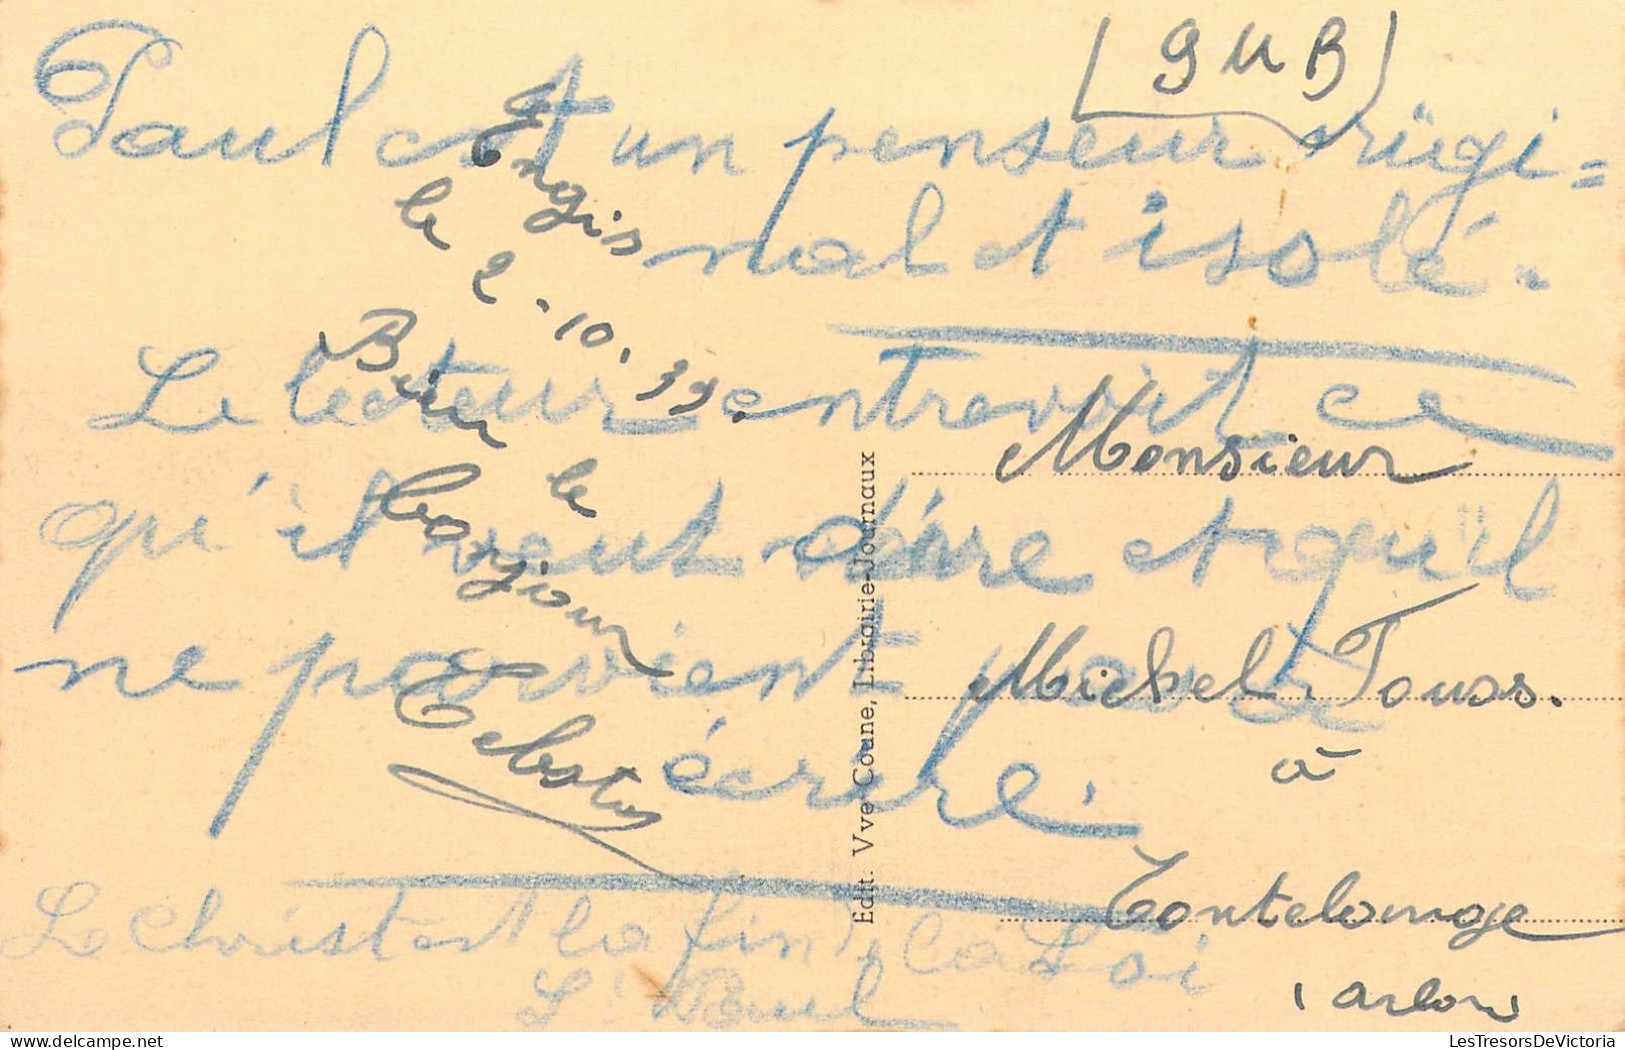 (SUB)
Paul est un penseur origi=
nal et isolé.
Le lecteur entrevoit ce
qu'il veut dire et qu'il
ne parvient pas à
écrire.
Le Christ est la fin de la Loi
St Paul
Engis
le 2.10.39.
Bien le
bonjour
Edit. Vve Coune, Librairie-Journaux
Monsieur
Michel Touss.
à
Tontelange
(arlon)
LesTresorsDeVictoria